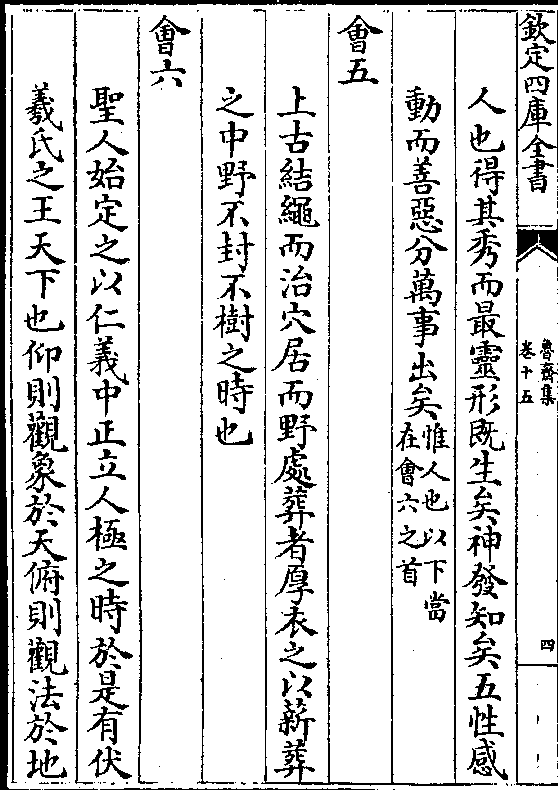 欽定四庫全書
魯齋集
卷十五
四
人也得其秀而最靈形既生矣神發知矣五性感
動而善惡分萬事出矣惟人也以下當
在會六之首
會五
上古結繩而治穴居而野處葬者厚衣之以薪葬
之中野不封不樹之時也
會六
聖人始定之以仁義中正立人極之時於是有伏
羲氏之王天下也仰則觀象於天俯則觀法於地